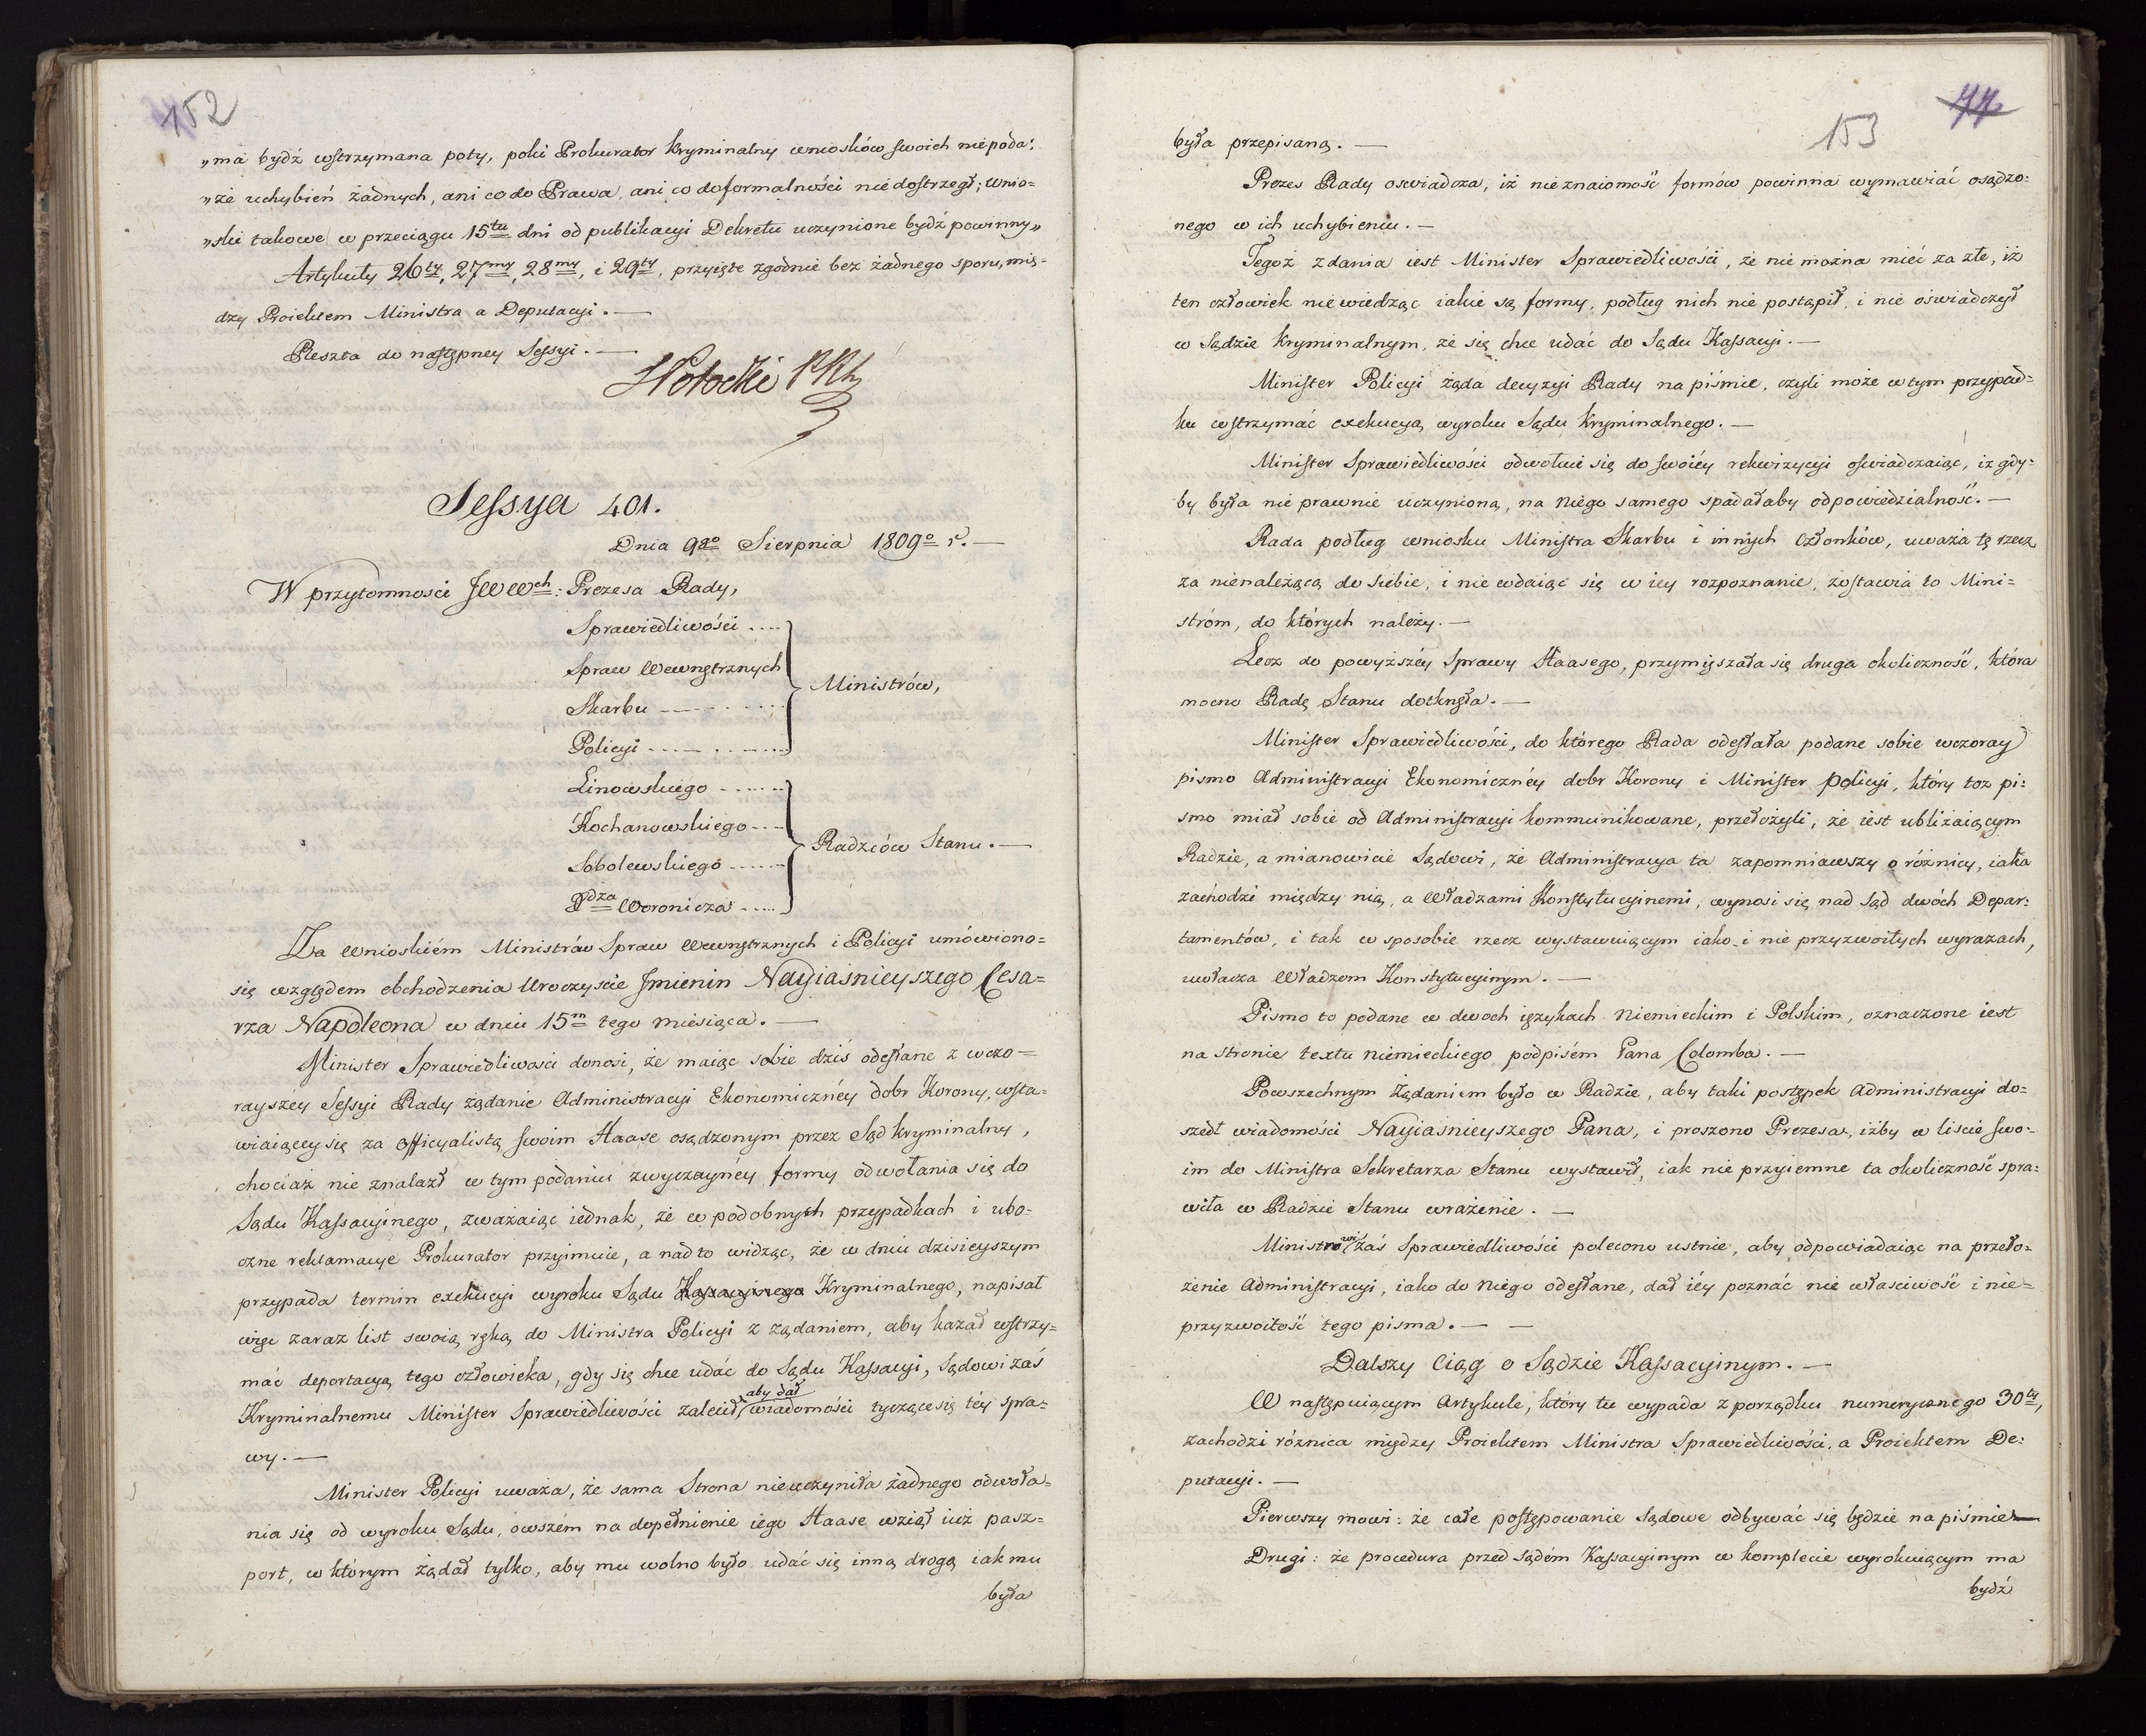 152
„ma bydź wstrzymana poty, poki Prokurator Kryminalny wniosków swoich niepoda;
„że uchybień żadnych, ani co do Prawa, ani co do formalności niedostrzegł; wnio=
„ski takowe w przeciągu 15tu dni od publikacyi Dekretu uczynione bydź powinny„
Artykuły 26ty, 27my, 28my, i 29ty, przyięte zgodnie bez żadnego sporu, mię=
dzy Proiektem Ministra a Deputacyi. —
Reszta do następney Sessyi. —
Sessya 401.
Dnia 9go Sierpnia 1809o r. —
W przytomnosci JWWch: Prezesa Rady,
Sprawiedliwości ....
Spraw Wewnętrznych
Skarbu
Policyi
Ministrów,
Linowskiego
Kochanowskiego
Sobolewskiego
Xdza Woronicza
Radzców Stanu. —
Za wnioskiém Ministrów Spraw Wewnętrznych i Policyi umówiono=
się względem obchodzenia Uroczyscie Jmienin Nayiaśnieyszego Cesa=
rza Napoleona w dniu 15m tego miesiąca. —
Minister Sprawiedliwosci donosi, że maiąc sobie dziś odesłane z wczo=
rayszey Sessyi Rady żądanie Administracyi Ekonomicznéy dobr Korony, wsta=
wiaiącey się za officyalistą swoim Haase osądzonym przez Sąd kryminalny,
chociaż nie znalazł w tym podaniu zwyczaynéy formy odwołania się do
Sądu Kassacyinego, zważaiąc iednak, że w podobnych przypadkach i ubo=
czne reklamacye Prokurator przyimuie, a nadto widząc, że w dniu dzisieyszym
przypada termin exekucyi wyroku Sądu Kassacyinego Kryminalnego, napisał
więc zaraz list swoią ręką do Ministra Policyi z żądaniem, aby kazał wstrzy=
mać deportacyą tego człowieka, gdy się chce udać do Sądu Kassacyi, Sądowi zaś
Kryminalnemu Minister Sprawiedliwości zalecił, aby dał wiadomości tyczące się téy spra=
wy. —
Minister Policyi uważa, że sama Strona nieuczyniła żadnego odwoła=
nia się od wyroku Sądu, owszém na dopełnienie iego Haase wziął iuż pasz=
port, w którym żądał tylko, aby mu wolno było udać się inną drogą iak mu
była
153
77
była przepisaną. —
Prezes Rady oswiadcza, iż nieznaiomość formów powinna wymawiać osądzo=
nego w ich uchybieniu. —
Tegoż zdania iest Minister Sprawiedliwości, że nie można mieć za złe, iż
ten człowiek niewiedząc iakie są formy, podług nich nie postąpił, i nie oświadczył
w Sądzie Kryminalnym, że się chce udać do Sądu Kassacyi. —
Minister Policyi żąda decyzyi Rady na piśmie, czyli może w tym przypad=
ku wstrzymać exekucyą wyroku Sądu Kryminalnego. —
Minister Sprawiedliwości odwołuie się do swoiéy rekwizycyi oświadczaiąc, iż gdy=
by była nie prawnie uczynioną, na niego samego spadałaby odpowiedzialność. —
Rada podług wniosku Ministra Skarbu i innych Członków, uważa tę rzecz
za nienależącą do siebie, i nie wdaiąc się w iey rozpoznanie, zostawia to Mini=
stróm, do których należy. —
Lecz do powyższéy Sprawy Haasego, przymięszała się druga okoliczność, która
mocno Radę Stanu dotknęła. —
Minister Sprawiedliwości, do którego Rada odesłała podane sobie wczoray
pismo Administracyi Ekonomicznéy dobr Korony i Minister Policyi, który toż pi=
smo miał sobie od Administracyi kommunikowane, przełożyli, że iest ubliżaiącym
Radzie, a mianowicie Sądowi, że Administracya ta zapomniawszy o różnicy, iaka
zachodzi między nią, a Władzami Konstytucyinemi, wynosi się nad Sąd dwóch Depar=
tamentów, i tak w sposobie rzecz wystawuiącym iako i nie przyzwoitych wyrazach,
uwłacza Władzom Konstytucyinym. —
Pismo to podane w dwoch ięzykach Niemieckim i Polskim, oznaczone iest
na stronie textu niemieckiego podpisém Pana Colomba. —
Powszechnym żądaniem było w Radzie, aby taki postępek Administracyi do=
szedł wiadomości Nayiaśnieyszego Pana, i proszono Prezesa, iżby w liscie swo=
im do Ministra Sekretarza Stanu wystawił, iak nie przyiemne ta okoliczność spra=
wiła w Radzie Stanu wrażenie. —
Ministrowi zaś Sprawiedliwości polecono ustnie, aby odpowiadaiąc na przeło=
żenie Administracyi, iako do niego odesłane, dał iéy poznać nie własciwość i nie=
przyzwoitość tego pisma. — —
Dalszy Ciąg o Sądzie Kassacyinym. —
W następuiącym Artykule, który tu wypada z porządku numerycznego 30ty,
zachodzi różnica między Proiektem Ministra Sprawiedliwości, a Proiektem De=
putacyi. —
Pierwszy mowi: że całe postępowanie Sądowe odbywać się będzie na piśmie —
Drugi: że procedura przed Sądém Kassacyinym w komplecie wyrokuiącym ma
bydź